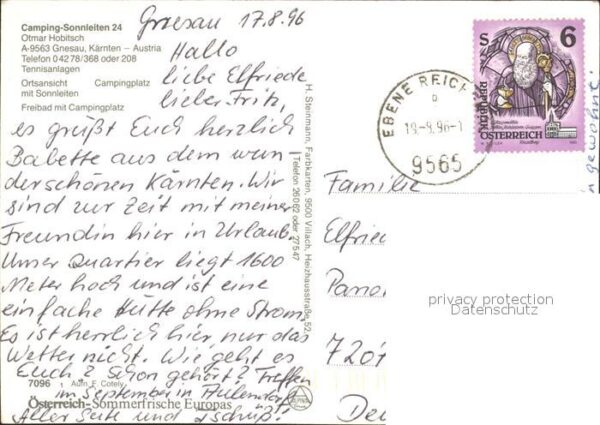 Camping-Sonnleiten 24
Otmar Hobitsch
A-9563 Gnesau, Kärnten – Austria
Telefon 04278/368 oder 208
Tennisanlagen
Ortsansicht Campingplatz
mit Sonnleiten
Freibad mit Campingplatz
Gnesau 17.8.96
Hallo
liebe Elfriede
lieber Fritz,
es grüßt Euch herzlich
Babette aus dem wun
derschönen Kärnten. Wir
sind zur Zeit mit meiner
Freundin hier in Urlaub.
Unser Quartier liegt 1600
Meter hoch und ist eine
einfache Hütte ohne Strom.
Es ist herrlich hier, nur das
Wetter nicht. Wie geht es
Euch? Schon gehört? Treffen
im September in Aulendorf
Alles Gute und Tschüß!
7096 1 Aufn. F. Cotely
Österreich-Sommerfrische Europas
H. Steinmann, Farbkarten, 9500 Villach, Heizhausstraße 52,
Telefon 26062 oder 27547
EBENE REICH
b
19-8.96-1
9565
S 6
REPUBLIK
ÖSTERREICH
Familie
Elfried
Pano
7201
Deu
gewohnt!
privacy protection
Datenschutz